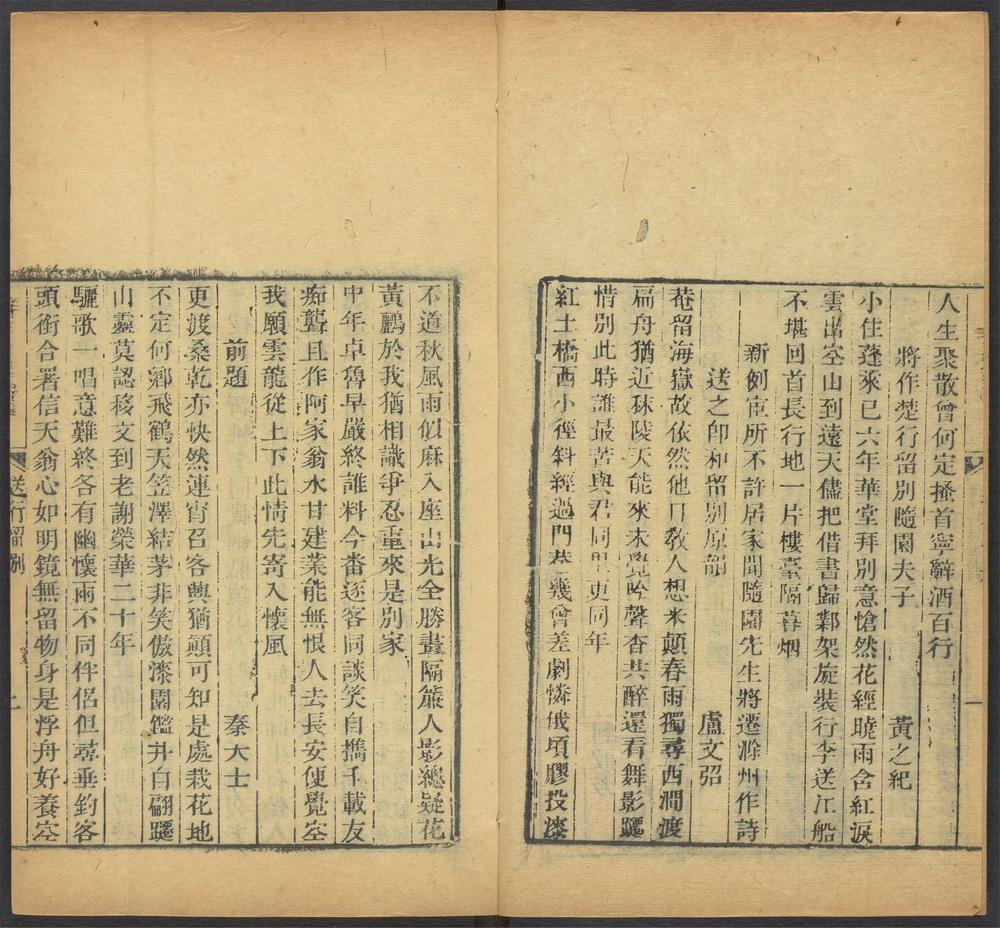 人生聚散曾何定搔首寧辭酒百行
將作楚行留別隨園夫子 黃之紀
小住蓬萊已六年華堂拜別意愴然花經曉雨含紅淚
雲出空山到遠天儘把借書歸鄴架旋裝行李送江船
不堪回首長行地一片樓臺隔暮烟
新例宦所不許居家聞隨園先生將遷滁州作詩
送之即和留別原韻 盧文弨
菴留海嶽故依然他日教人想米顛春雨獨尋西澗渡
扁舟猶近秣陵天能來未覺吟聲杳共醉還看舞影躚
惜別此時誰最苦與君同里更同年
紅土橋西小徑斜經過門巷幾曾差劇憐俄頃膠投漆
不道秋風雨似麻入座山光全勝畫隔簾人影總疑花
黃鸝於我猶相識爭忍重來是別家
中年卓魯早嚴終誰料今番逐客同談笑自攜千載友
痴聾且作阿家翁水甘建業能無恨人去長安便覺空
我願雲龍從上下此情先寄入懷風
前題 秦大士
更渡桑乾亦快然連宵召客興猶顛可知是處栽花地
不定何鄉飛鶴天笠澤結茅非笑傲漆園鑑井自翩躚
山靈莫認移文到老謝榮華二十年
驪歌一唱意難終各有幽懷兩不同伴侶但尋垂釣客
頭銜合署信天翁心如明鏡無留物身是浮舟好養空
送行留別